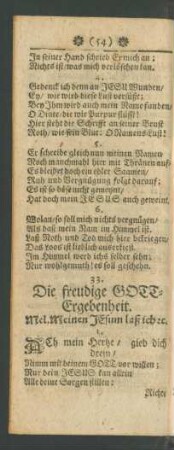 (54)
In seiner Hand schrieb er mich an:
Nichts ist, was mich verlöschen kan.
4.
Gedenck ich denn an JESU Wunden,
Ey, wie wird diese Lust versüßt;
Bey Ihm wird auch mein Name funden,
O Dinte, die wie Purpur fliesst!
Hier steht die Schrifft an seiner Brust
Roth, wie sein Blut: O Namens Lust!
5.
Er schreibt gleich nun meinen Namen
Noch manchmahl hier mit Thränen auf,
Es bleibet doch ein edler Saamen,
Ruh und Vergnügung folgt darauf;
Es ist so böse nicht gemeynt,
Hat doch mein JESUS auch geweint.
6.
Wolan, so soll mich nichts vergnügen,
Als daß mein Nam im Himmel ist.
Laß Noth und Tod mich hier bekriegen,
Im Himmel werd ichs selber sehn;
Nur wohlgemuth! es soll geschehn.
33.
Die freudige GOTT-
Ergebenheit.
Mel. Meinen JEsum laß ich ꝛc.
1.
ACh mein Hertze, gieb dich
drein,
Nimm mit deinem GOTT vor willen;
Nur dein JESUS kan allein
Alle deine Sorgen stillen:
Nichts